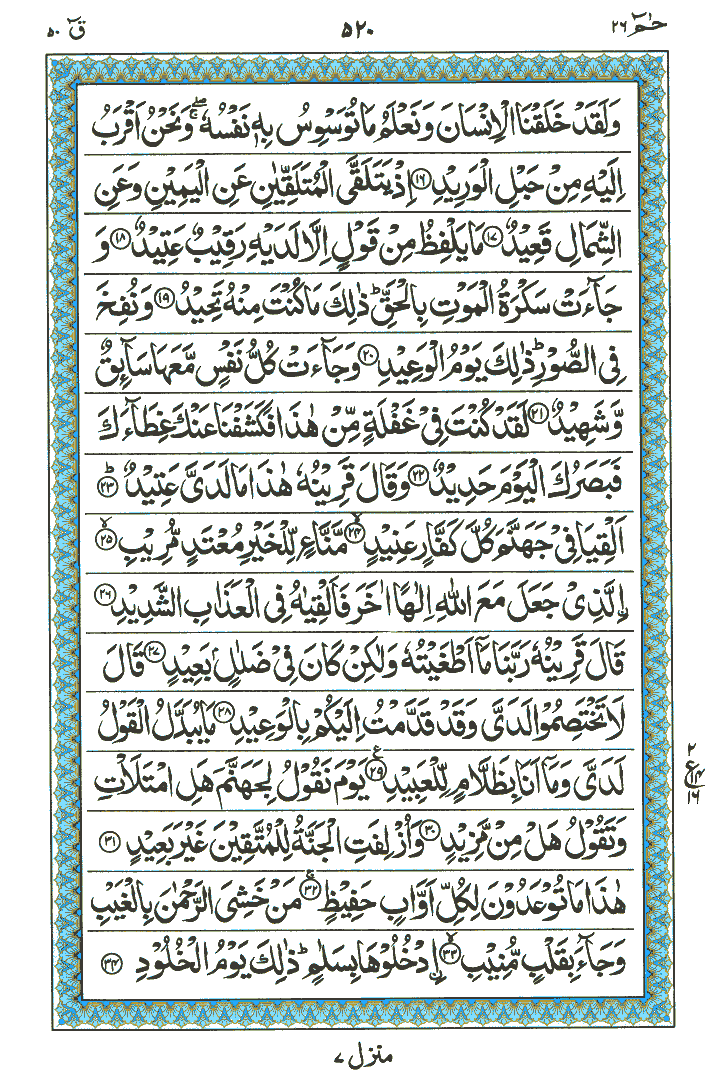 حٰمٓ ٢٦
٥٢٠
قٓ ٥٠
وَلَقَدْ خَلَقْنَا الْاِنْسَانَ وَنَعْلَمُ مَا تُوَسْوِسُ بِهٖ نَفْسُهٗ ۖۚ وَنَحْنُ اَقْرَبُ
اِلَيْهِ مِنْ حَبْلِ الْوَرِيْدِ ⑯ اِذْ يَتَلَقَّى الْمُتَلَقِّيٰنِ عَنِ الْيَمِيْنِ وَعَنِ
الشِّمَالِ قَعِيْدٌ ⑰ مَا يَلْفِظُ مِنْ قَوْلٍ اِلَّا لَدَيْهِ رَقِيْبٌ عَتِيْدٌ ⑱ وَ
جَآءَتْ سَكْرَةُ الْمَوْتِ بِالْحَقِّ ؕ ذٰلِكَ مَا كُنْتَ مِنْهُ تَحِيْدُ ⑲ وَنُفِخَ
فِى الصُّوْرِ ؕ ذٰلِكَ يَوْمُ الْوَعِيْدِ ⑳ وَجَآءَتْ كُلُّ نَفْسٍ مَّعَهَا سَآئِقٌ
وَّشَهِيْدٌ ㉑ لَقَدْ كُنْتَ فِىْ غَفْلَةٍ مِّنْ هٰذَا فَكَشَفْنَا عَنْكَ غِطَآءَكَ
فَبَصَرُكَ الْيَوْمَ حَدِيْدٌ ㉒ وَقَالَ قَرِيْنُهٗ هٰذَا مَا لَدَىَّ عَتِيْدٌ ؕ ㉓
اَلْقِيَا فِىْ جَهَنَّمَ كُلَّ كَفَّارٍ عَنِيْدٍ ۙ ㉔ مَّنَّاعٍ لِّلْخَيْرِ مُعْتَدٍ مُّرِيْبِ ۙ ㉕
اِلَّذِىْ جَعَلَ مَعَ اللّٰهِ اِلٰهًا اٰخَرَ فَاَلْقِيٰهُ فِى الْعَذَابِ الشَّدِيْدِ ㉖
قَالَ قَرِيْنُهٗ رَبَّنَا مَاۤ اَطْغَيْتُهٗ وَلٰكِنْ كَانَ فِىْ ضَلٰلٍۭ بَعِيْدٍ ㉗ قَالَ
لَا تَخْتَصِمُوْا لَدَىَّ وَقَدْ قَدَّمْتُ اِلَيْكُمْ بِالْوَعِيْدِ ㉘ مَا يُبَدَّلُ الْقَوْلُ
لَدَىَّ وَمَاۤ اَنَا بِظَلَّامٍ لِّلْعَبِيْدِ ع ㉙ يَوْمَ نَقُوْلُ لِجَهَنَّمَ هَلِ امْتَلَاْتِ
وَتَقُوْلُ هَلْ مِنْ مَّزِيْدٍ ㉚ وَاُزْلِفَتِ الْجَنَّةُ لِلْمُتَّقِيْنَ غَيْرَ بَعِيْدٍ ㉛
هٰذَا مَا تُوْعَدُوْنَ لِكُلِّ اَوَّابٍ حَفِيْظٍ ۚ ㉜ مَنْ خَشِىَ الرَّحْمٰنَ بِالْغَيْبِ
وَجَآءَ بِقَلْبٍ مُّنِيْبِ ۙ ㉝ اِدْخُلُوْهَا بِسَلٰمٍ ؕ ذٰلِكَ يَوْمُ الْخُلُوْدِ ㉞
٢
ع ١٤
١٦
منزل ٧